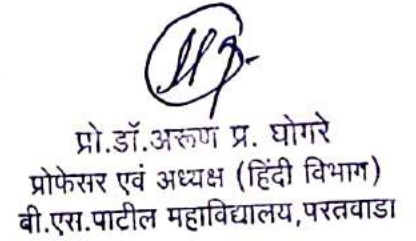 प्रो.डॉ.अरूण प्र. घोगरे
प्रोफेसर एवं अध्यक्ष (हिंदी विभाग)
बी.एस.पाटील महाविद्यालय,परतवाडा